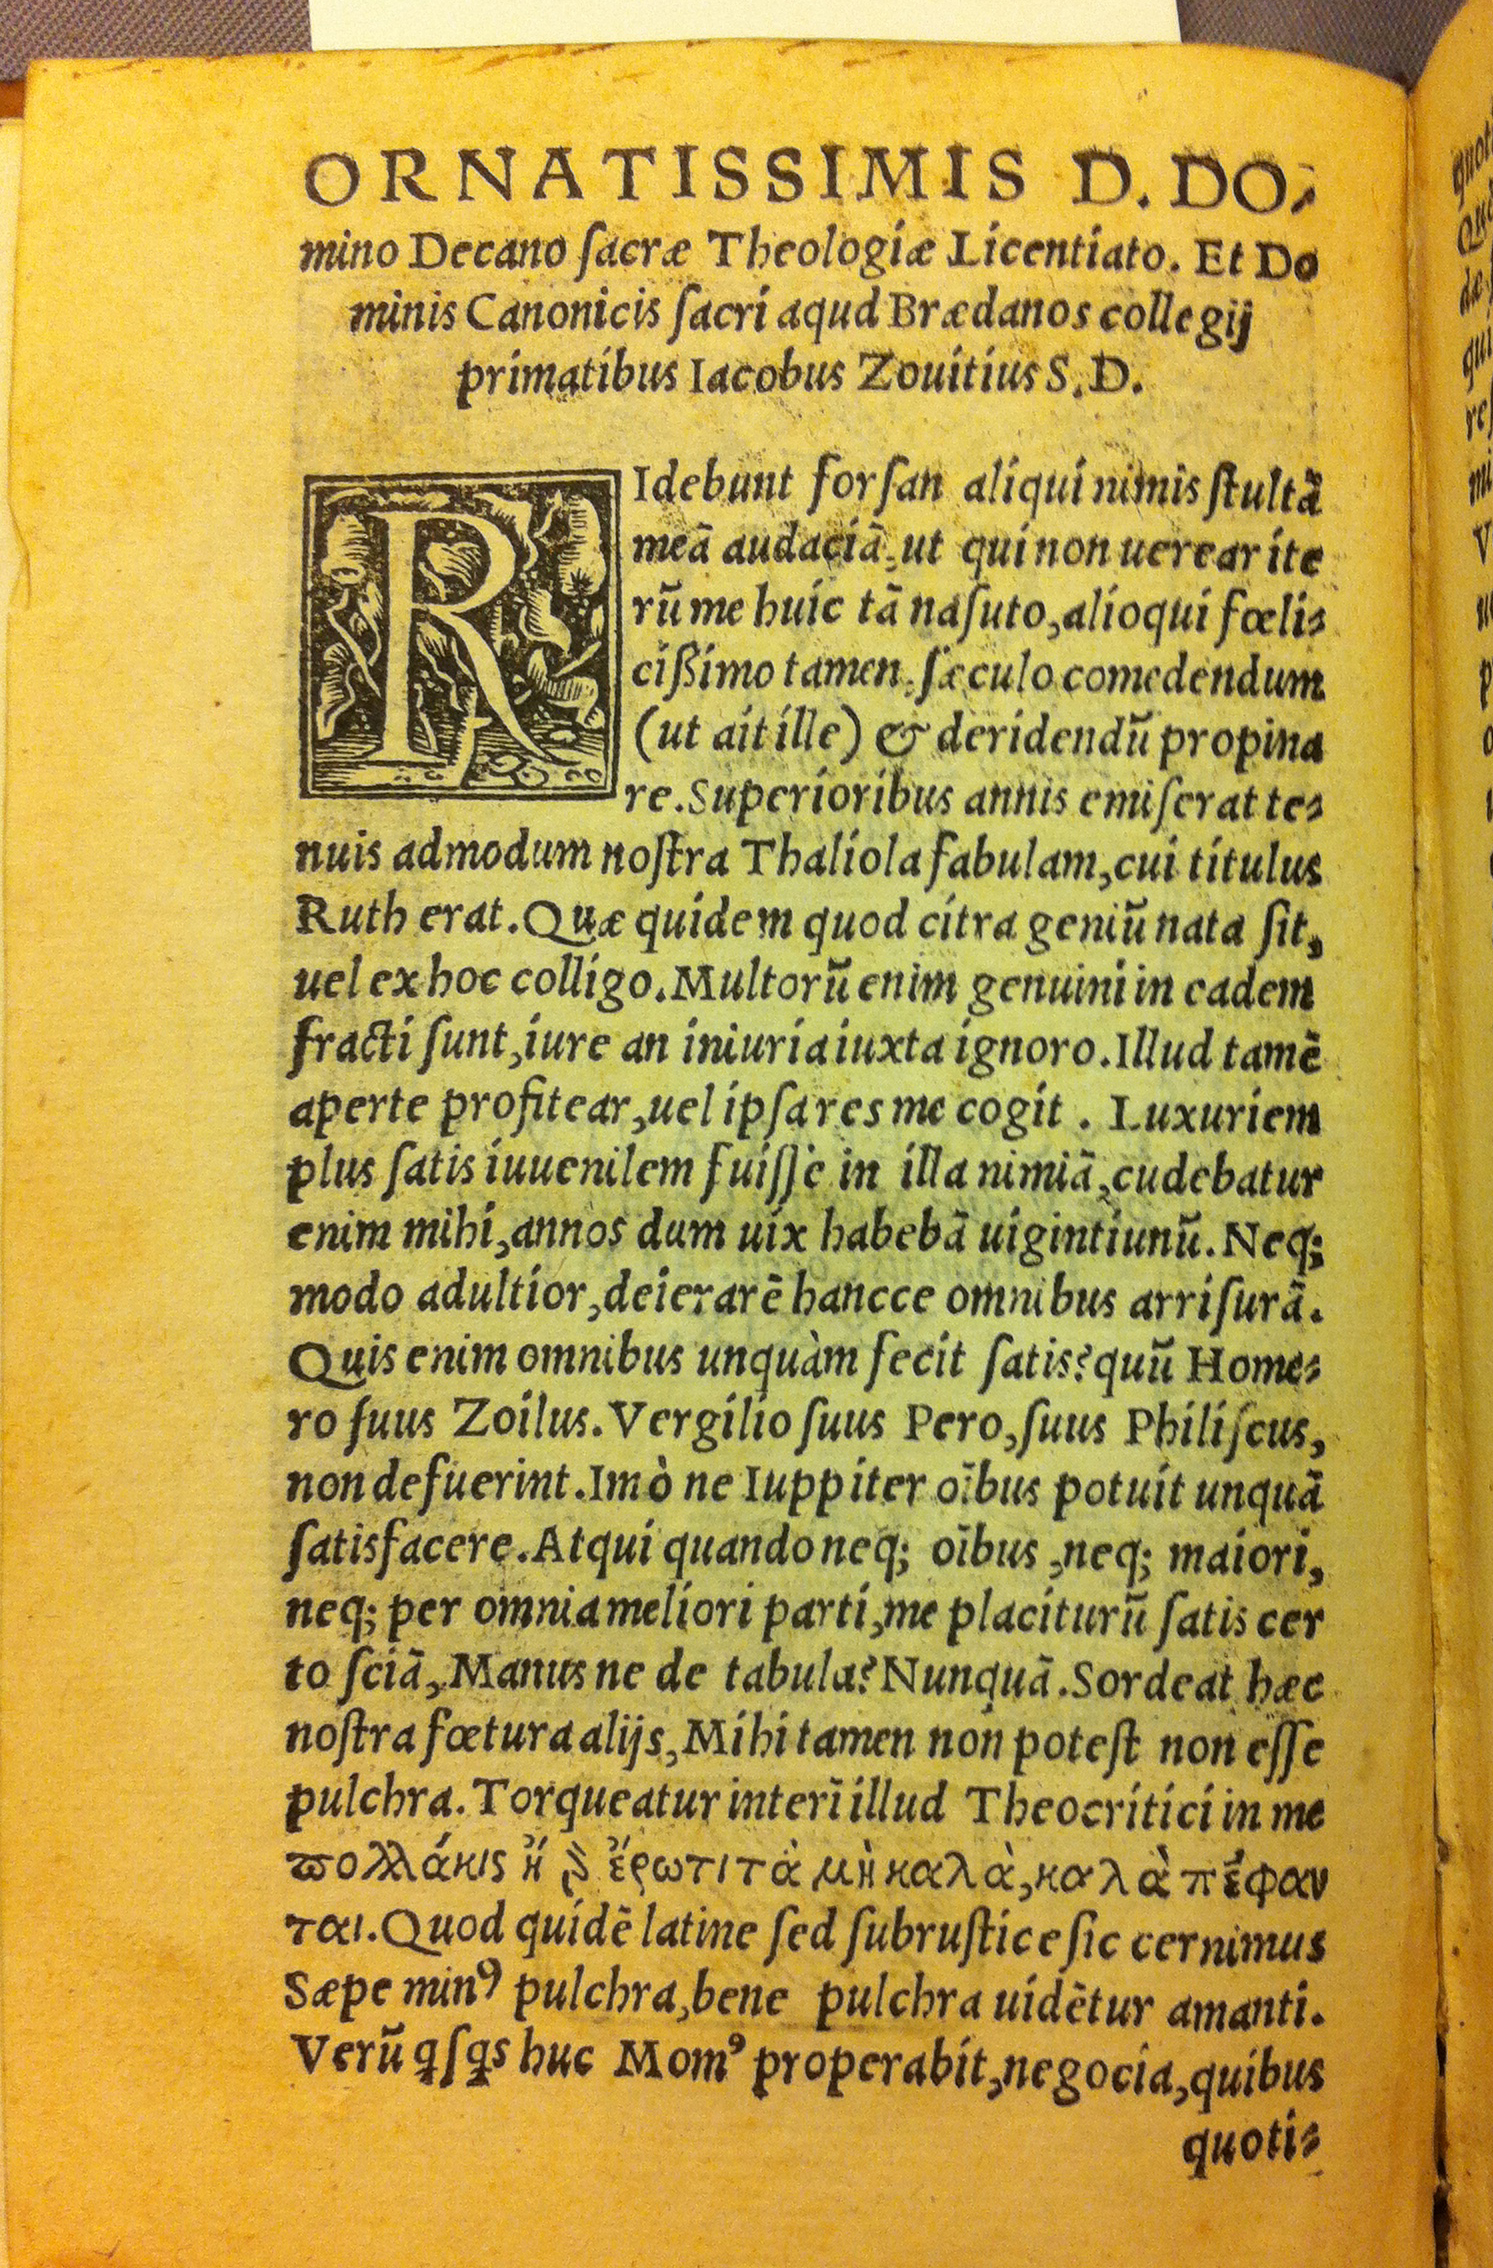 ORNATISSIMIS D. DO⸗
mino Decano sacræ Theologiæ Licentiato. Et Do
minis Canonicis sacri aqud Brædanos collegij
primatibus Iacobus Zouitius S.D.
RIdebunt forsan aliqui nimis stultā
meā audaciā, ut qui non uerear ite
rū me huic tā nasuto, alioqui fœlis⸗
cißimo tamen, sæculo comedendum
(ut ait ille) & deridendū propina
re. Superioribus annis emiserat te⸗
nuis admodum nostra Thaliola fabulam, cui titulus
Ruth erat. Quæ quidem quod citra geniū nata sit,
uel ex hoc colligo. Multorū enim genuini in eadem
fracti sunt, iure an iniuria iuxta ignoro. Illud tamē
aperte profitear, uel ipsa res me cogit . Luxuriem
plus satis iuuenilem fuisse in illa nimiā, cudebatur
enim mihi, annos dum uix habebā uigintiunū. Neq;
modo adultior, deierarē hancce omnibus arrisurā.
Quis enim omnibus unquàm fecit satis? quū Home⸗
ro suus Zoilus. Vergilio suus Pero, suus Philiscus,
non defuerint. Imò ne Iuppiter oībus potuit unquā
satisfacere. Atqui quando neq; oībus , neq; maiori,
neq; per omnia meliori parti, me placiturū satis cer
to sciā, Manus ne de tabula? Nunquā. Sordeat hæc
nostra fœtura alijs, Mihi tamen non potest non esse
pulchra. Torqueatur interī illud Theocritici in me
πολλάκις ἤ δ̀ ἔρωτι τὰ μὴ καλὰ, καλὰ πέφαν
ται. Quod quidē latine sed subrustice sic cernimus
Sæpe minꝰ pulchra, bene pulchra uidētur amanti.
Verū ꝗsꝗs huc Momꝰ properabit, negocia, quibus
quoti⸗